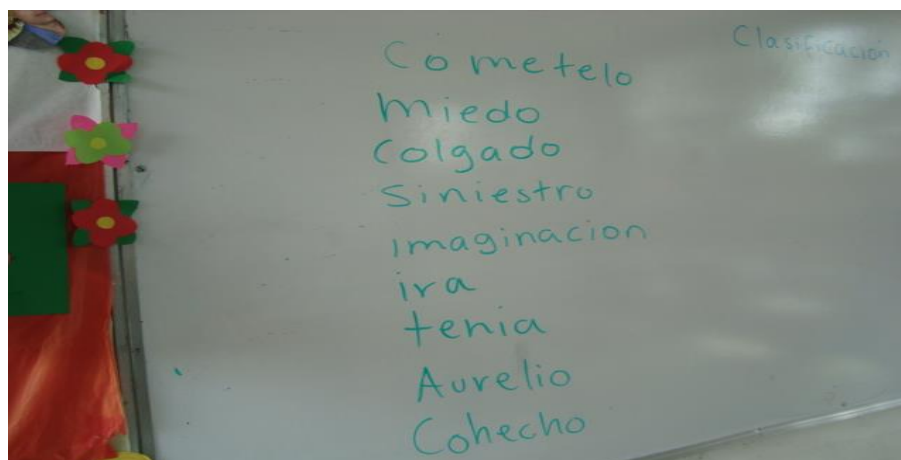 Clasificación
Cometelo
Miedo
Colgado
Siniestro
Imaginacion
ira
tenia
Aurelio
Cohecho